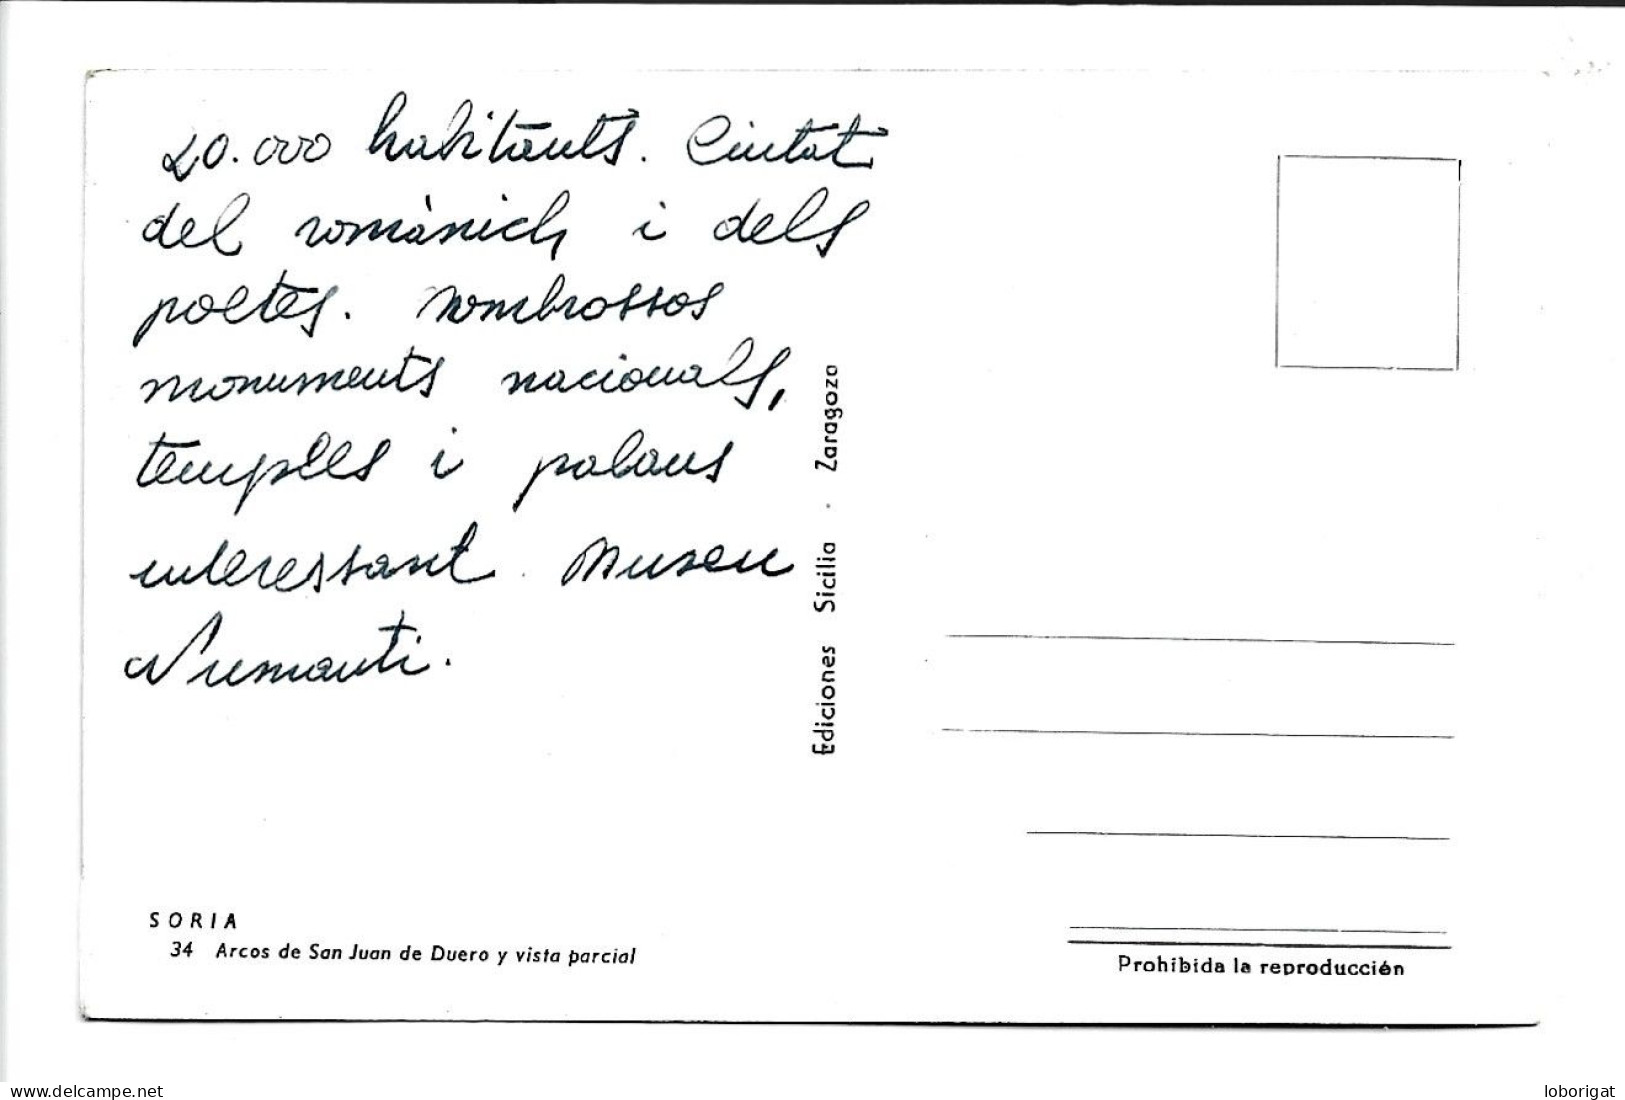 20.000 habitants. Ciutat
del romànich i dels
poetes. Nombrossos
monuments nacionals,
temples i palaus
interessant. Museu
Numanti.
Ediciones Sicilia - Zaragoza
SORIA
34 Arcos de San Juan de Duero y vista parcial
Prohibida la reproducción
www.delcampe.net
loborigat